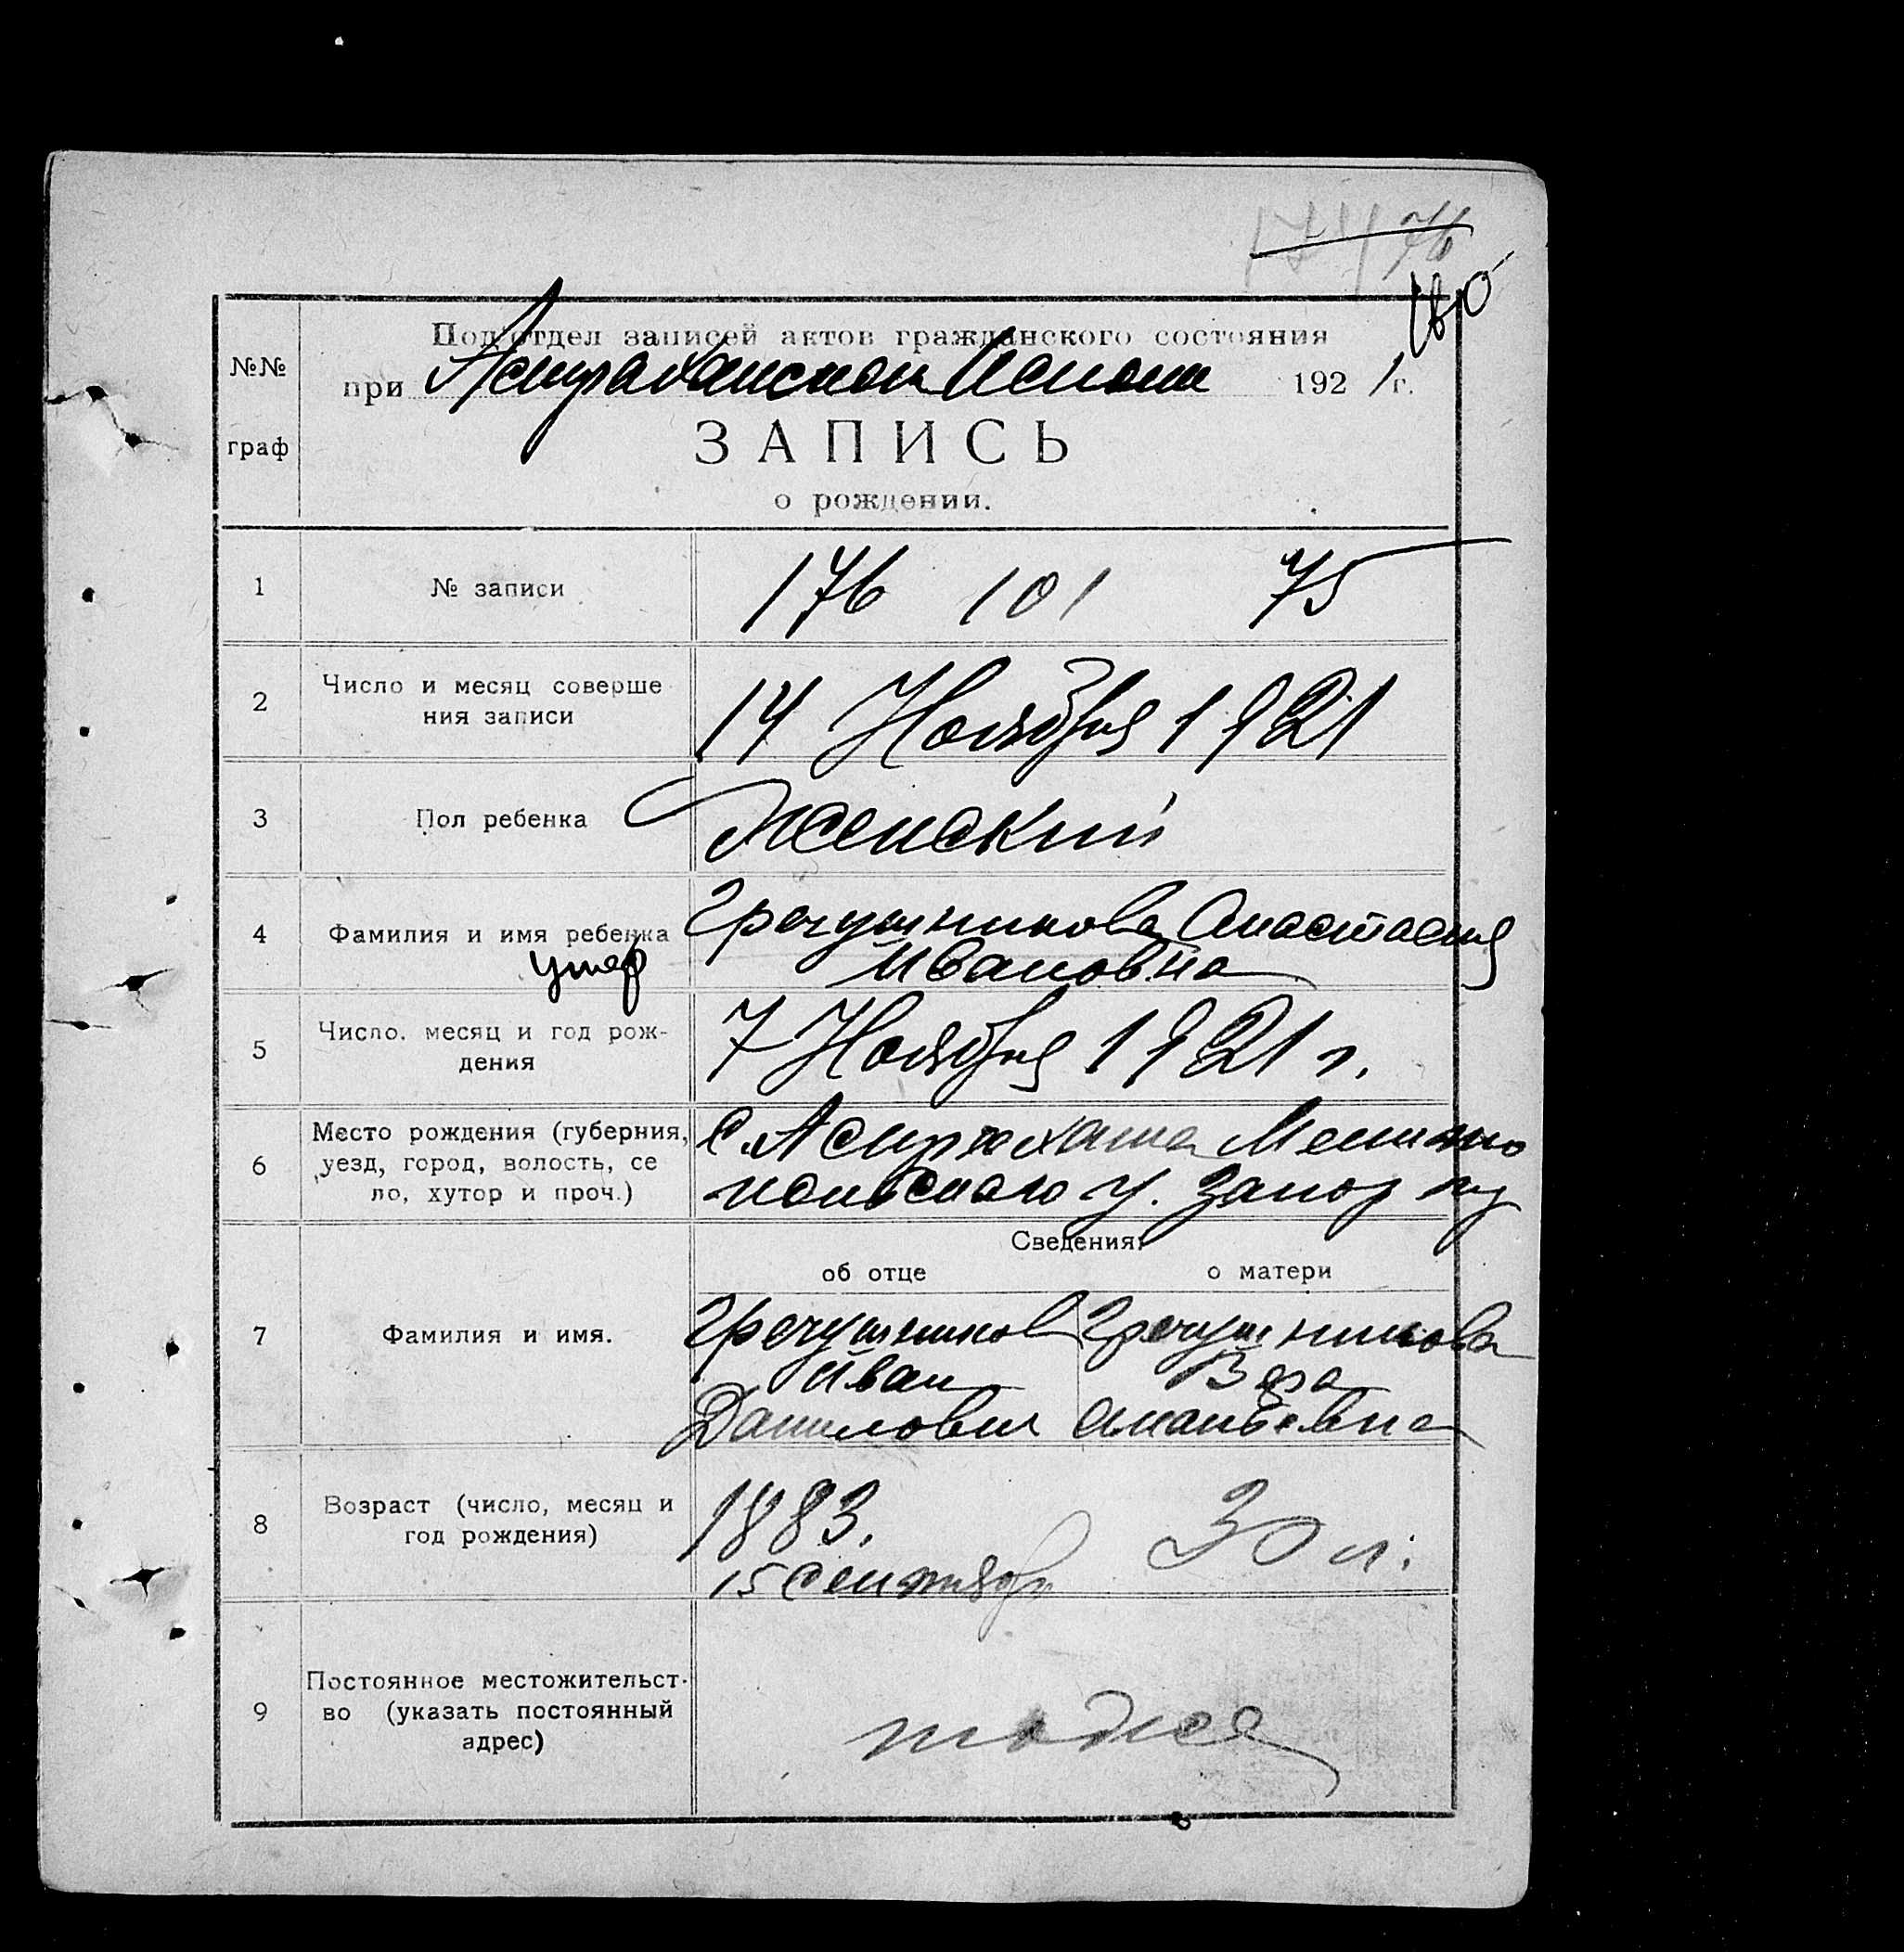 174 76
180
№№
граф
Подотдел записей актов гражданского состояния
при Астраханском Исполк 1921 г.
ЗАПИСЬ
о рождении.
1 № записи 176 101 75
2 Число и месяц соверше
ния записи 14 Ноября 1921
3 Пол ребенка Женский
4 Фамилия и имя ребенка Гречушникова Анастасия
умер Ивановна
5 Число. месяц и год рож-
дения 7 Ноября 1921 г.
6 Место рождения (губерния,
уезд, город, волость, се
ло, хутор и проч.) с. Астраханка Мелито
польского у. Запор губ
Сведения:
об отце о матери
7 Фамилия и имя. Гречушников Гречушникова
Иван Вера
Данилович Ананьевна
8 Возраст (число, месяц и
год рождения) 1883. 30 л.
15 Сентября
9 Постоянное местожительст-
во (указать постоянный
адрес)